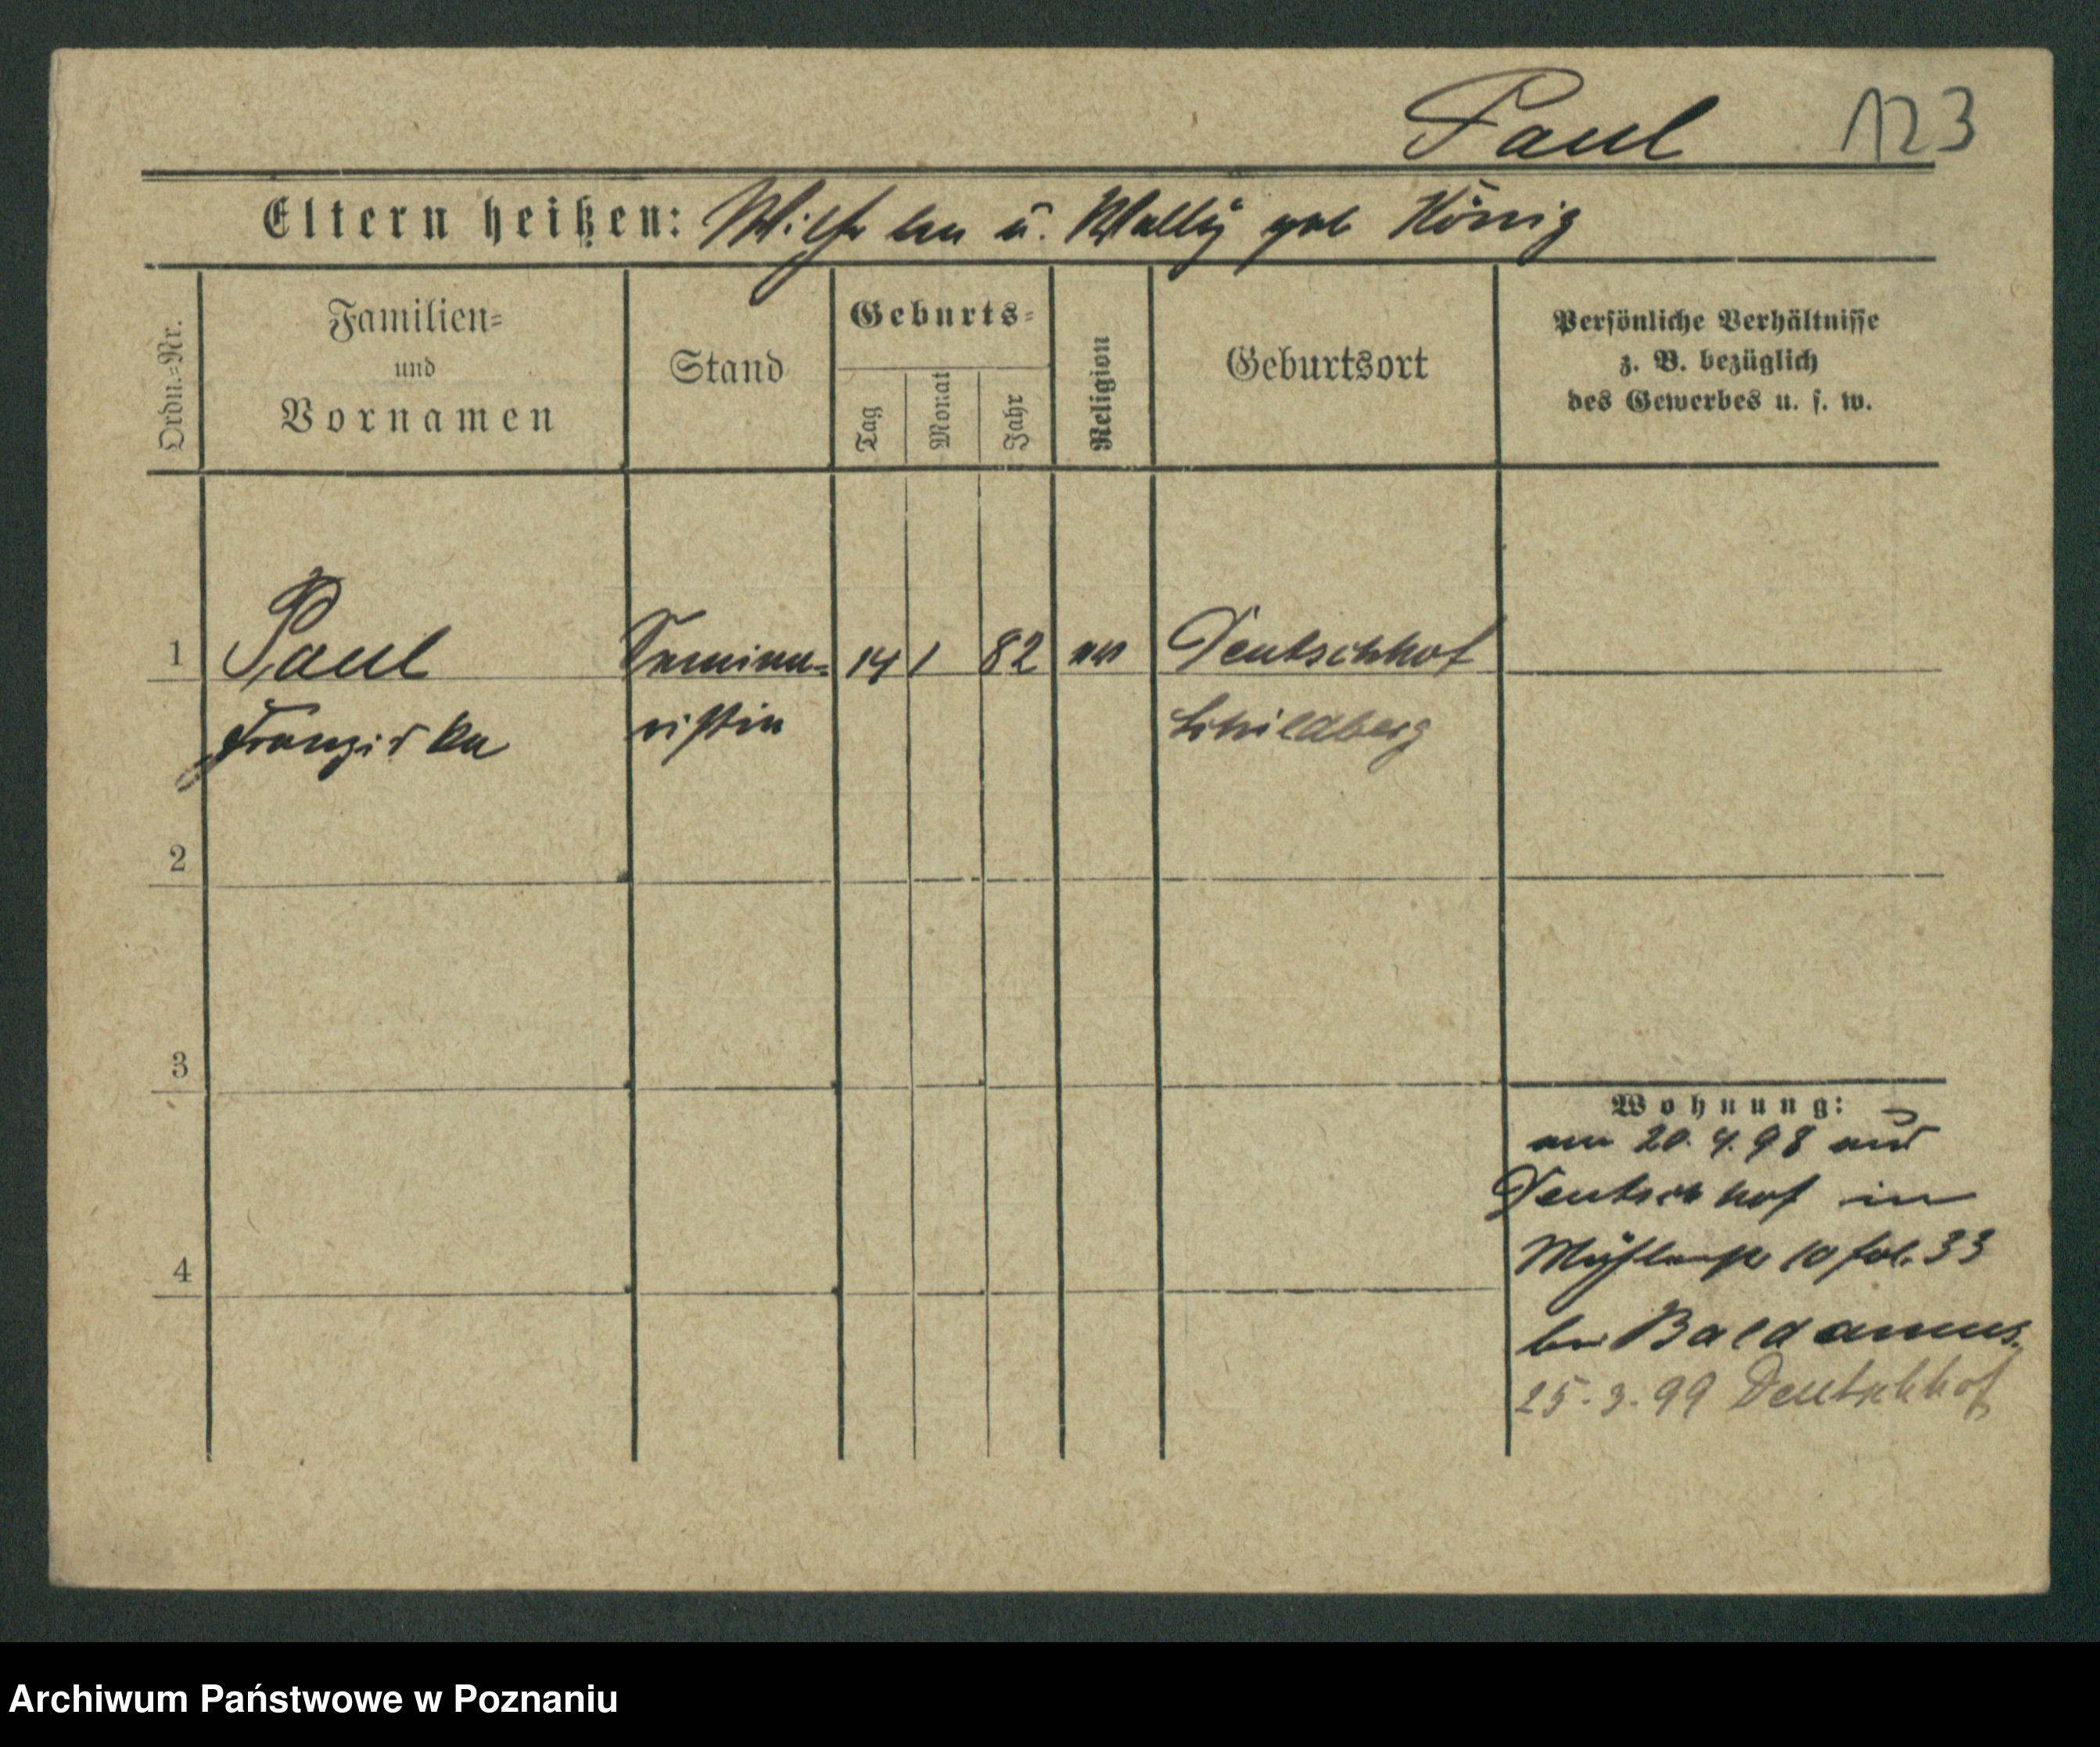 Paul 123
Eltern heißen: Wilhelm u. Wally geb König
Ordn.=Nr.
Familien=
und
Vornamen
Stand
Geburts=
Tag
Monat
Jahr
Religion
Geburtsort
Persönliche Verhältnisse
z. B. bezüglich
des Gewerbes u. s. w.
1 Paul Semina= 14 1 82 Deutschhof
Franziska ristin Schildberg
2
3
4
Wohnung:
am 20. 4. 98 aus
Deutschhof in
10 fol. 33
bei Baldamus.
25. 3. 99 Deutschhof
Archiwum Państwowe w Poznaniu